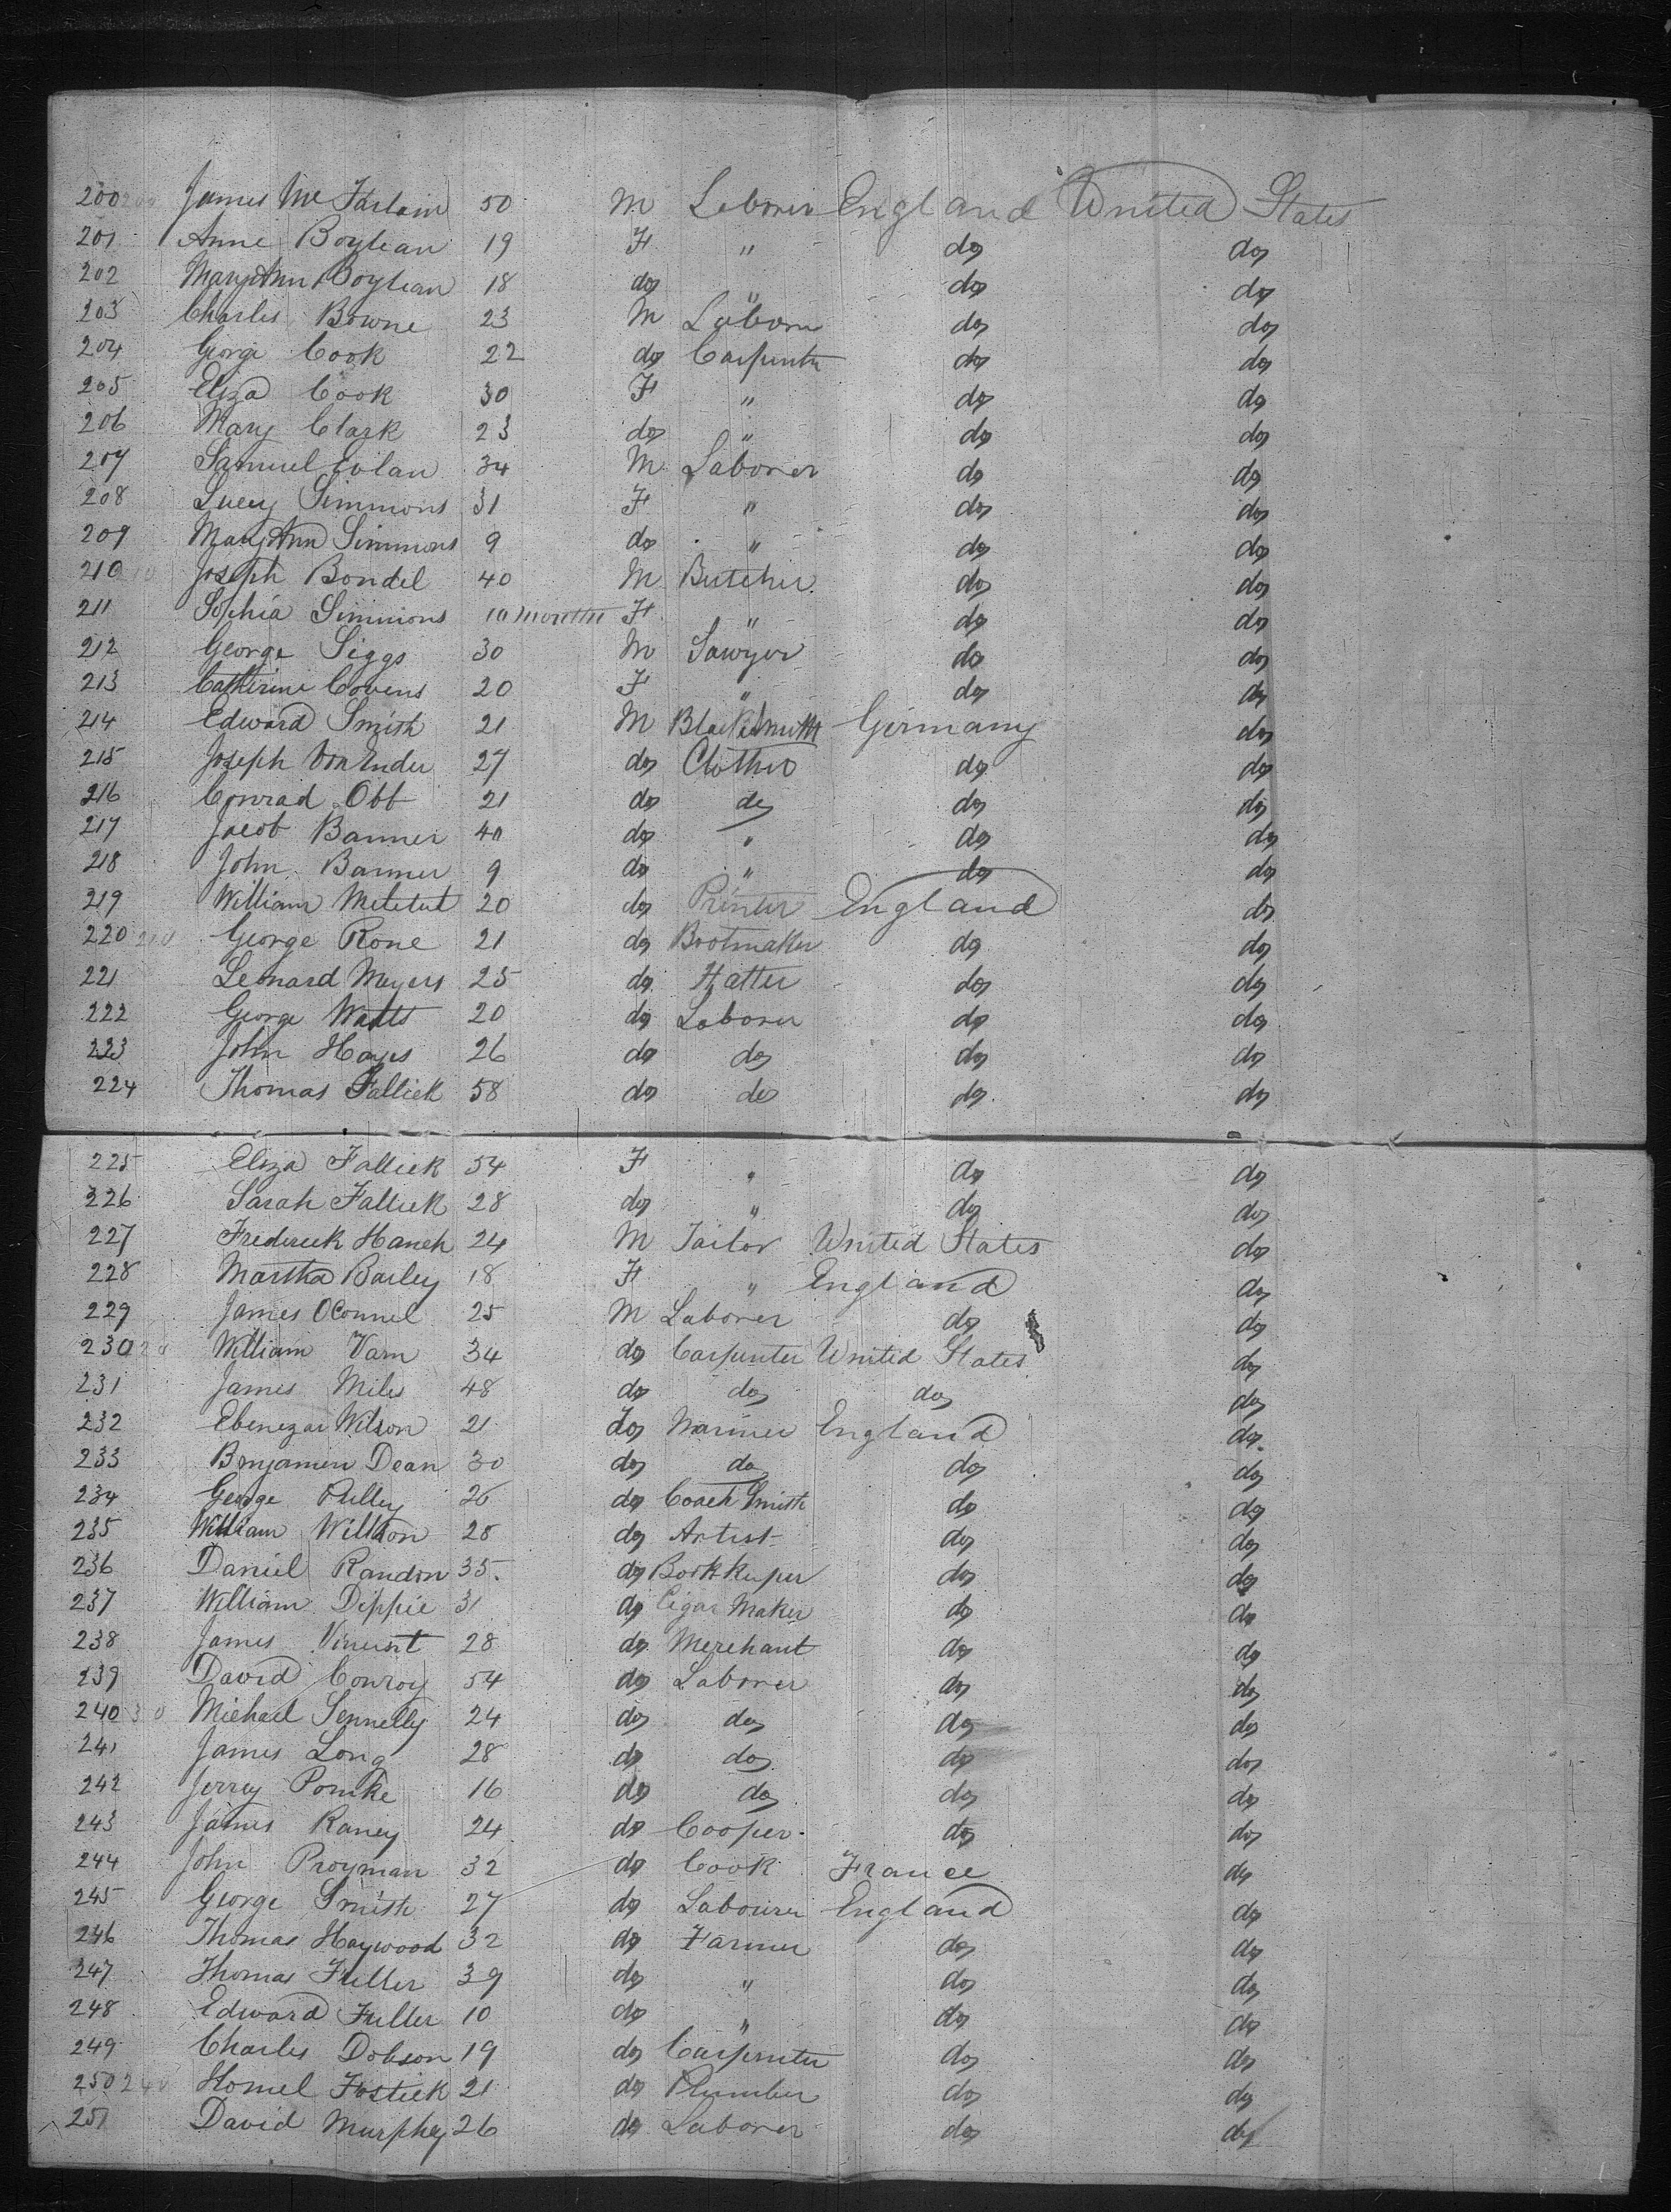 200 200 James McFarlain 50 M Laborer England United States
201 Anne Boylean 19 F " do do
202 MaryAnn Boylean 18 do " do do
203 Charles Bowne 23 M Laborer do do
204 George Cook 22 do Carpenter do do
205 Eliza Cook 30 F " do do
206 Mary Clark 23 do " do do
207 Samuel 34 M Laborer do do
208 Lucy Simmons 31 F " do do
209 MaryAnn Simmons 9 do " do do
210 210 Joseph Bondel 40 M Butcher do do
211 Sophia Simmons 10 months F " do do
212 George Siggs 30 M Sawyer do do
213 Catherine Covens 20 F " do do
214 Edward Smith 21 M Blacksmith Germany do
215 Joseph VonEnder 27 do Clothier do do
216 Conrad Obb 21 do do do do
217 Jacob Banner 40 do " do do
218 John Banner 9 do " do do
219 William 20 do Printer England do
220 210 George Rone 21 do Bootmaker do do
221 Leonard Meyers 25 do Hatter do do
222 George Watts 20 do Laborer do do
223 John Hayes 26 do do do do
224 Thomas Fallick 58 do do do do
225 Eliza Fallick 54 F " do do
226 Sarah Fallick 28 do " do do
227 Frederick Haneh 24 M Tailor United States do
228 Martha Barley 18 F " England do
229 James OConnel 25 M Laborer do do
230 20 William Varn 34 do Carpenter United States do
231 James Miles 48 do do do do
232 Ebenezar Wilson 21 do Mariner England do
233 Benjamen Dean 30 do do do do
234 George Pulley 26 do Coach Smith do do
235 William Willson 28 do Artist do do
236 Daniel Randon 35 do Bookkeeper do do
237 William Dippie 31 do Cigar Maker do do
238 James Vincent 28 do Merchant do do
239 David Conroy 54 do Laborer do do
240 30 Michael Sennelly 24 do do do do
241 James Long 28 do do do do
242 Jerrey Pomke 16 do do do do
243 James Raney 24 do Cooper do do
244 John Proyman 32 do Cook France do
245 George Smith 27 do Labourer England do
246 Thomas Haywood 32 do Farmer do do
247 Thomas Fuller 39 do " do do
248 Edward Fuller 10 do " do do
249 Charles Dobson 19 do Carpenter do do
250 240 Homel Fostick 21 do Plumber do do
251 David Murphey 26 do Laborer do do